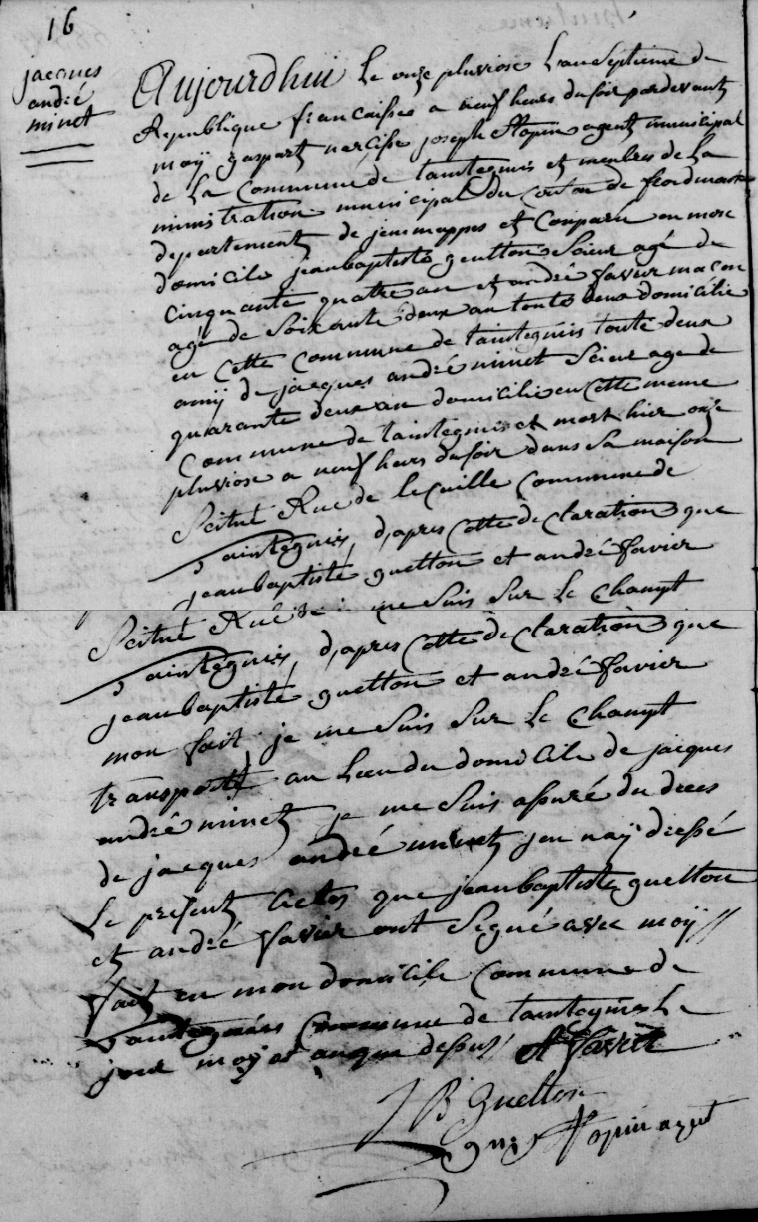 16
jacques
andré
minet
Aujourdhui le onze pluviose l'an septieme de
Republique francaisse a neuf heurs du soir pardevant
moÿ gaspart narcisse joseph agent municipal
de la Commune de taintegnis et menbre de la
ministration municipal du Conton de froidmont
departement de jemmappes et Comparu en mon
domicile jeanbaptiste guelton Scieur agé de
cinquante quatre an et andré favier macon
agé de Soixante deux an toute deux domicilie
en cette commune de taintegnis toute deux
amÿ de jacques andré minet Scieur age de
quarante deux an domicilie en cette meme
Commune de taintegnis et mort hier onze
pluviose a neuf heurs du soir dans sa maison
Scitué Rue de lecuille commune de
taintegnies, d,apres cette de claration que
jeanbaptiste guelton et andré favier
me suis sur le champt
Scitué Rue de
taintegnies, d,apres cette de claration que
jeanbaptiste guelton et andré favier
mon fait je me suis sur le champt
transporté au lieu du domicile de jacques
andré minet je me suis assuré du deces
de jacques andré minet jen naÿ dressé
le present actes que jeanbaptiste guelton
et andré favier ont Segné avec moÿ //
fait en mon domicile commune de
taintegnies commune de taintegnies le
jour moÿ et an que dessus A favier
J B Guelton
agent